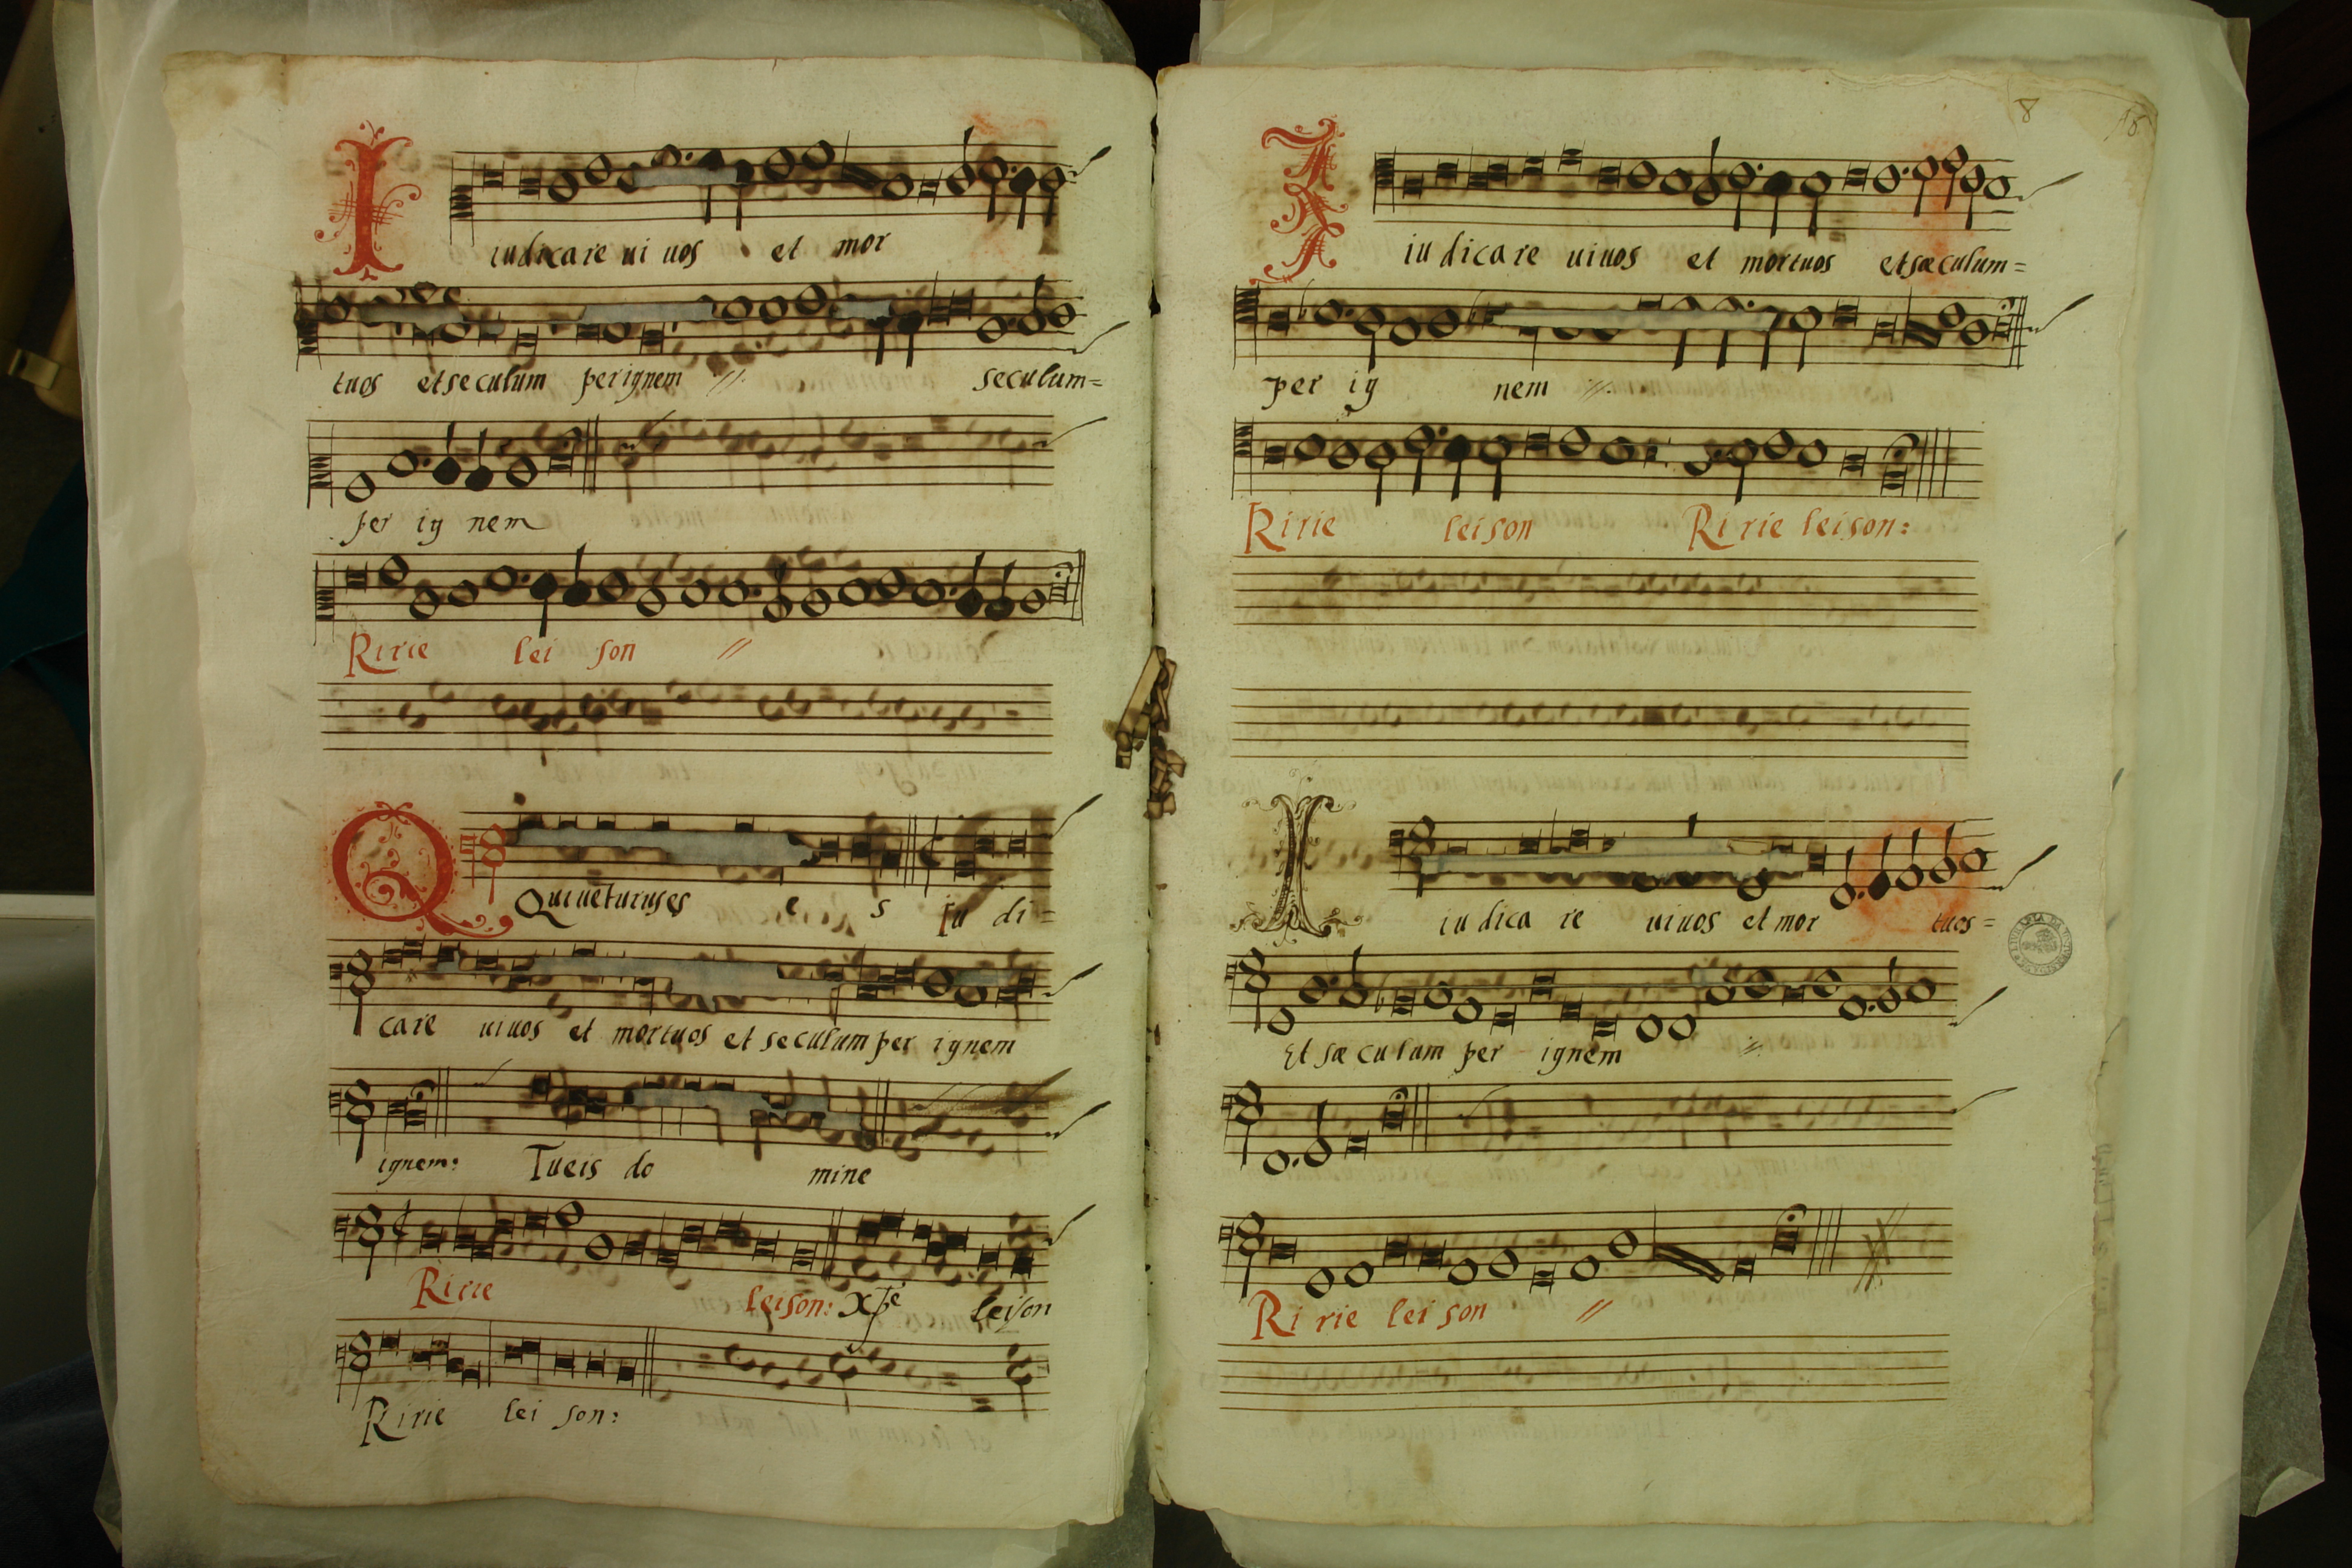 I
iudicare ui uos et mor
tuos et seculum per ignem // seculum=
per ig nem
Ririe lei son //
Q
Qui ueturuses e s Iu di=
care uiuos et mortuos et seculum per ignem
ignem: Tueis do mine
Ririe leison: xpe leison
Ririe lei son:
8
I
iu dicare uiuos et mortuos et sæculum=
per ig nem //
Ririe leison Ri rie leison:
I
iu dica re uiuos et mor tuos=
Et sæ culum per ignem //
Ri rie lei son //